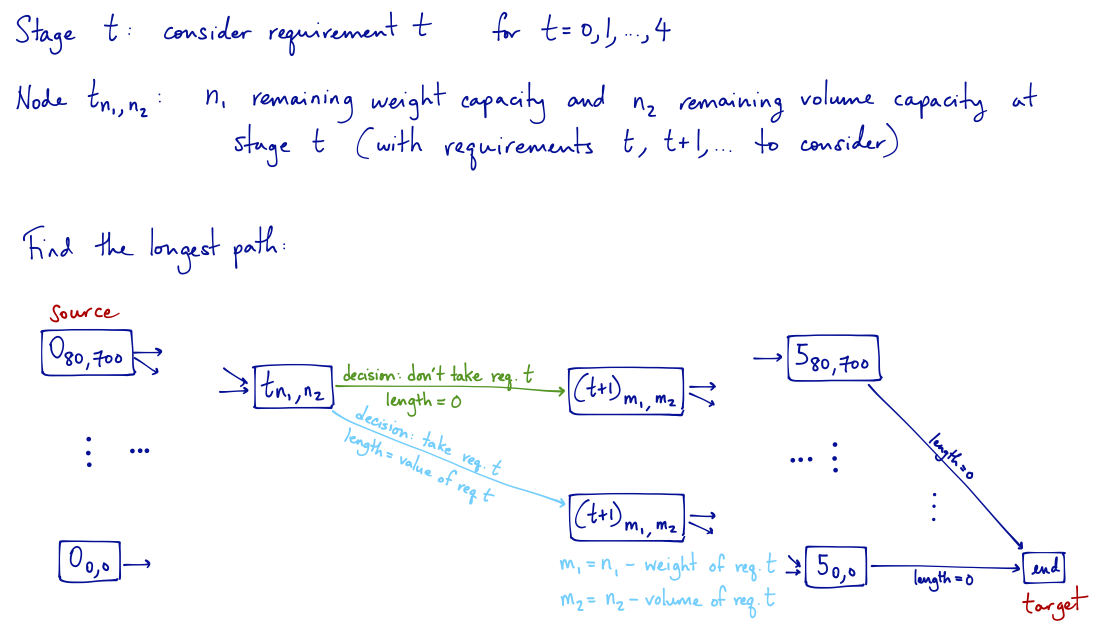 Stage t: consider requirement t for t = 0, 1, ..., 4
Node t_{n₁,n₂}: n₁ remaining weight capacity and n₂ remaining volume capacity at
stage t (with requirements t, t+1, ... to consider)
Find the longest path:
source
0_{80,700}
⋮ ...
0_{0,0}
t_{n₁,n₂}
decision: don't take req. t
length = 0
decision: take req. t
length = value of req. t
(t+1)_{m₁,m₂}
(t+1)_{m₁,m₂}
m₁ = n₁ - weight of req. t
m₂ = n₂ - volume of req. t
5_{80,700}
... ⋮
length = 0
⋮
5_{0,0}
length = 0
end
target